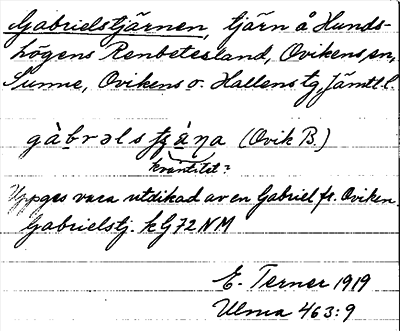 Gabrielstjärnen, tjärn å Hunds-
högens Renbetesland, Ovikens sn,
Sunne, Ovikens o. Hallens tg, Jämtl. l.
gàbrəls (Ovik B.)
kvantitet?
Uppges vara utdikad av en Gabriel fr. Oviken
Gabrielstj. kG72NM
E. Terner 1919
Ulma 463:9